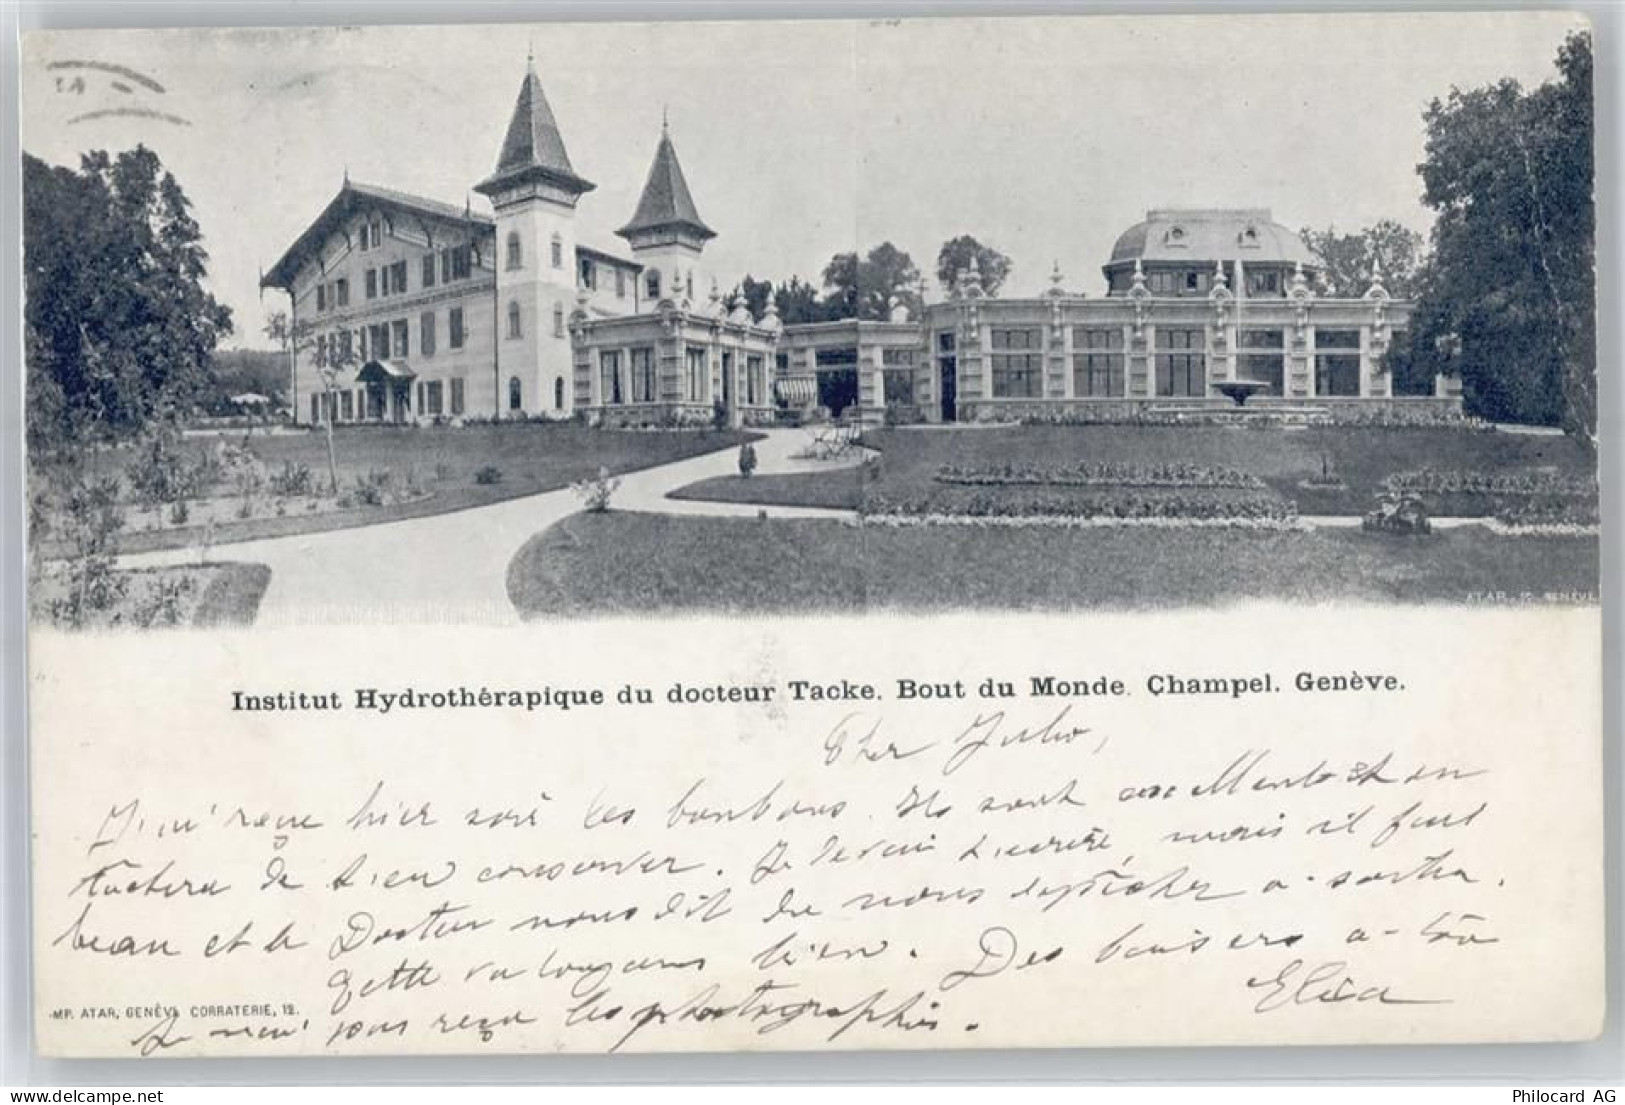 ATAR, GENÈVE
Institut Hydrothérapique du docteur Tacke. Bout du Monde. Champel. Genève.
Cher Julio,
J'ai reçu hier soir les bonbons. Ils sont excellents et on
de bien conserver. Je devais t'écrire, mais il faut
beau et le Docteur nous dit de nous dépêcher a sortir.
va toujours bien. Des baisers a toi
Elisa
IMP. ATAR, GENÈVE, CORRATERIE, 12.
Je n'ai pas reçu les photographies.
delcampe.net
Philocard AG